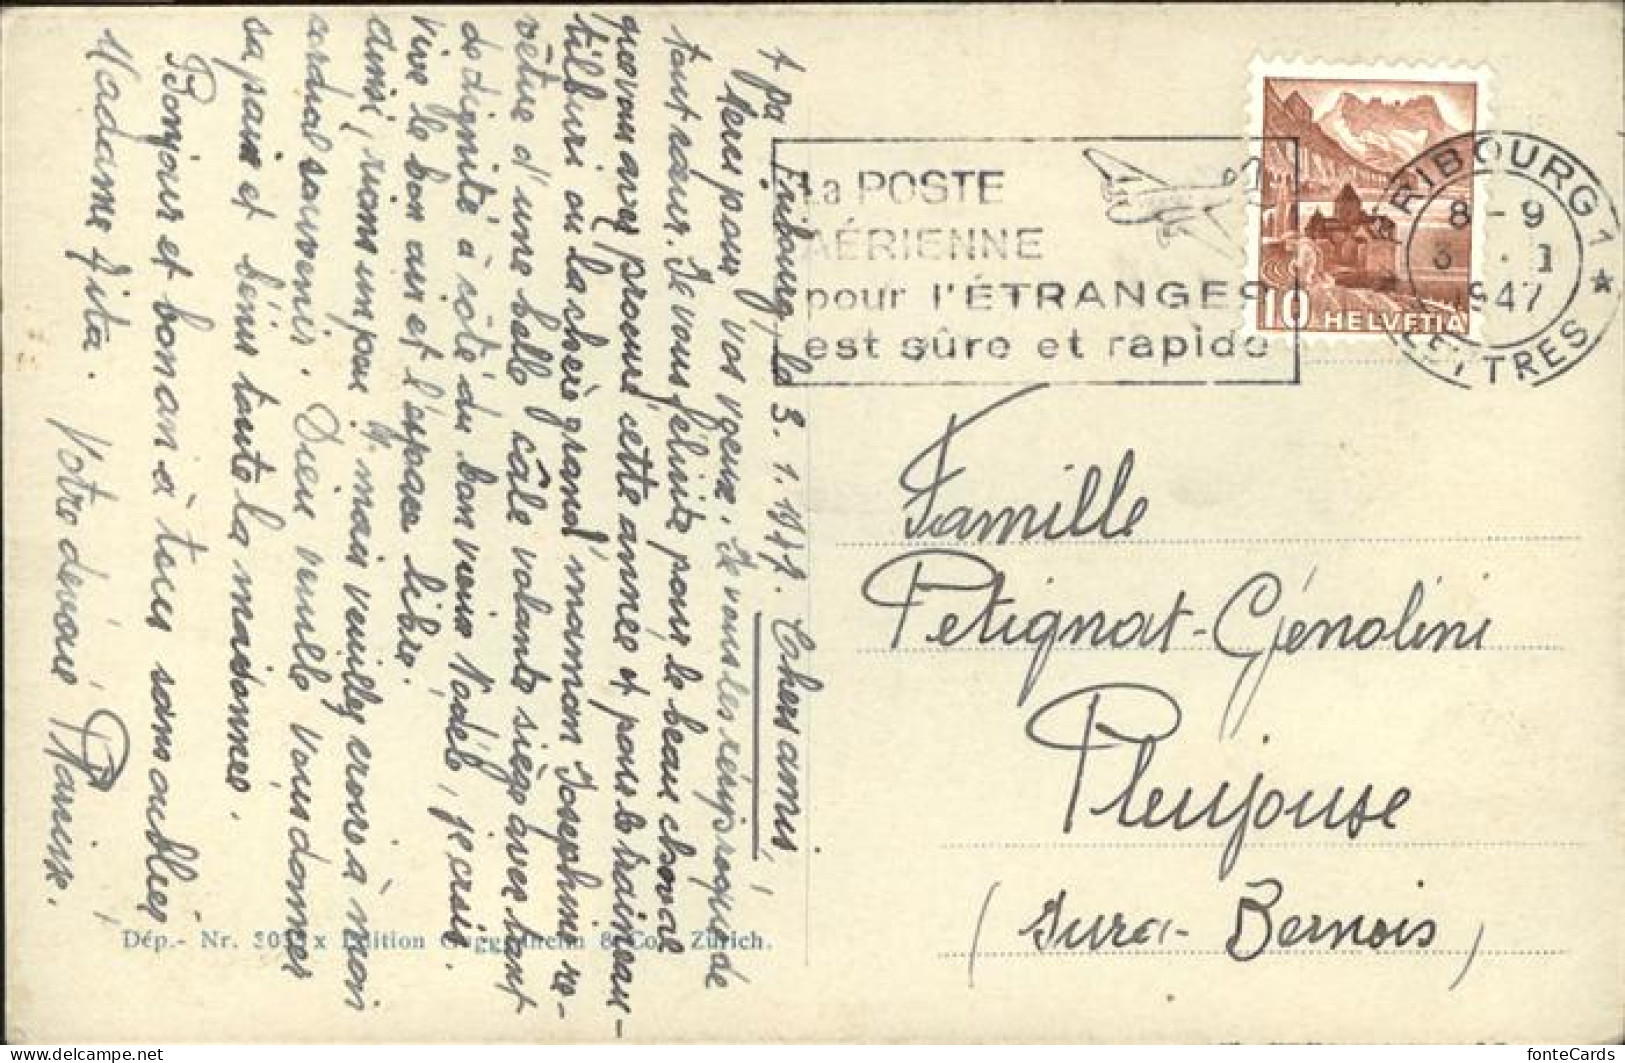 + pa Fribourg, le 3. 1. 1947. Chers amis,
Merci pour vos voeux. Je vous les réciproque de
tout coeur. Je vous félicite pour le beau cheval
que vous avez procuré cette année et pour le traineau-
tilburi où la chère grand'maman Josephine re-
vêtue d'une belle câle volante siège avec tant
de dignité à côté du bon vieux Nadél, je crois.
Vive le bon air et l'espace libre.
rions un peu mais veuillez croire à mon
cordial souvenir. Dieu veuille vous donner
sa paix et bénir toute la maisonnée.
Bonjour et bon an à tous sans oublier
Madame Zita. Votre dévoué
La POSTE
AÉRIENNE
pour l'ÉTRANGER
est sûre et rapide
10 HELVETIA
FRIBOURG 1
8-9
3 . 1
1947
LETTRES
Famille
Petignat-Génolini
Pleujouse
(Jura-Bernois)
Dép.- Nr. x Edition Guggenheim & Co., Zürich.
fonteCards